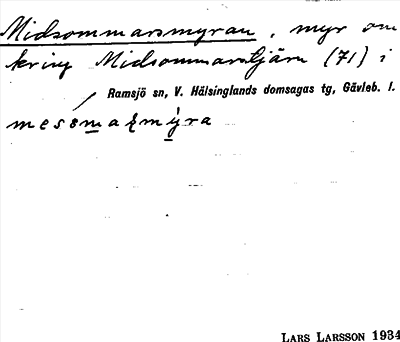 Midsommarsmyran, myr om
kring Midsommarstjärn (71) i
Ramsjö sn, V. Hälsinglands domsagas tg, Gävleb. l.
LARS LARSSON 1934